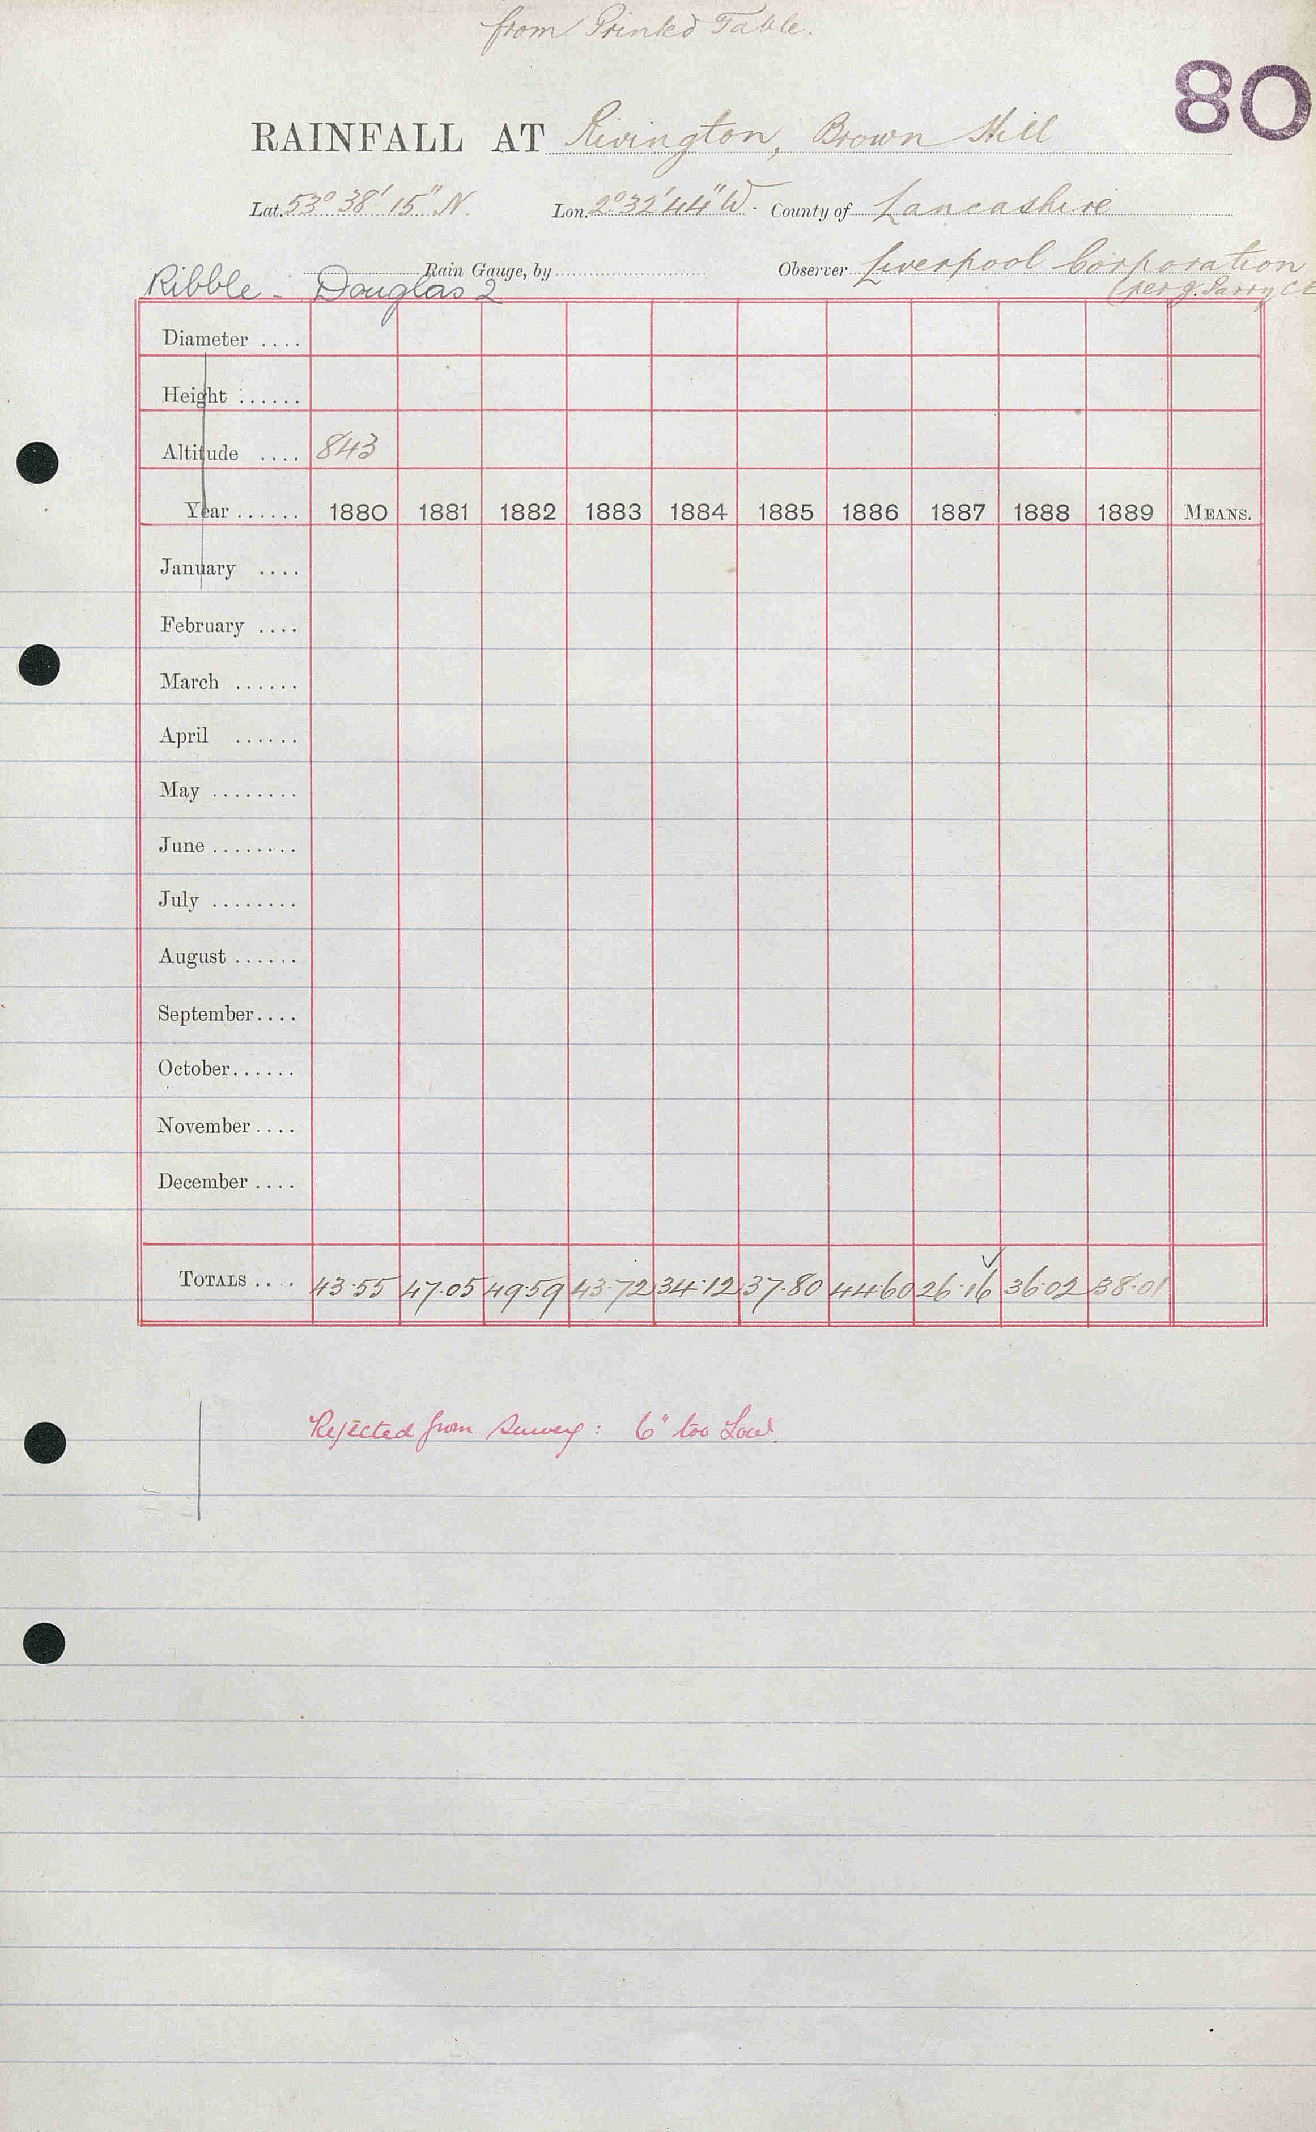 from Printed Table.
80
RAINFALL AT Rivington, Brown Hill
Lat. 53° 38' 15" N. Lon. 2° 32' 44" W. County of Lancashire
Rain Gauge, by Observer Liverpool Corporation
Ribble - Douglas 2 (per J. Parry C.E
Diameter ....
Height ......
Altitude .... 843
Year ...... 1880 1881 1882 1883 1884 1885 1886 1887 1888 1889 MEANS.
January ....
February ....
March ......
April ......
May ........
June ........
July ........
August ......
September ....
October ......
November ....
December ....
TOTALS .... 43.55 47.05 49.59 43.72 34.12 37.80 44.60 26.16 36.02 38.01
Rejected from Survey: 6" too Low